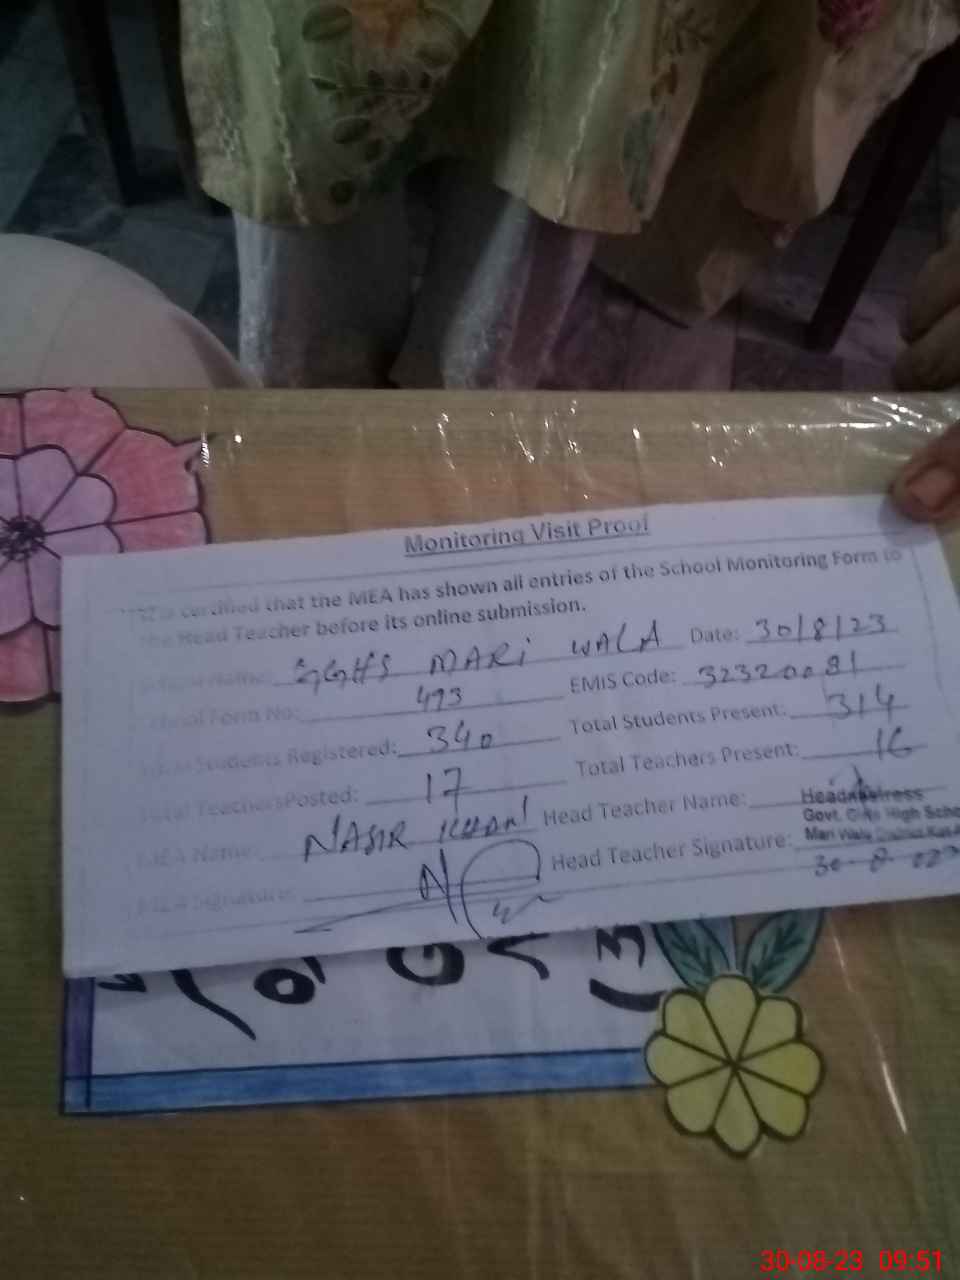 Monitoring Visit Proof
It is certified that the MEA has shown all entries of the School Monitoring Form to
the Head Teacher before its online submission.
School Name: GGHS MARI WALA Date: 30/8/23
School Form No: 493 EMIS Code: 32320081
Total Students Registered: 340 Total Students Present: 314
Total TeachersPosted: 17 Total Teachers Present: 16
MEA Name: NASIR KHAN Head Teacher Name:
MEA Signature: Head Teacher Signature:
Headmistress
Govt. Girls High Scho
Mari Wala District
30-8-023
30-08-23 09:51